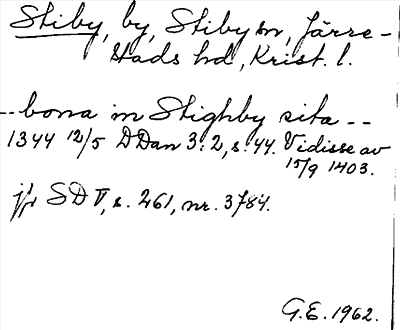 Stiby, by, Stiby sn, Järre-
stads hd, Krist. l.
--bona in Stighby sita --
1344 12/5 DDan 3:2, s. 44. Vidisse av
15/9 1403.
jfr SD V, s. 261, nr. 3784.
G.E. 1962.